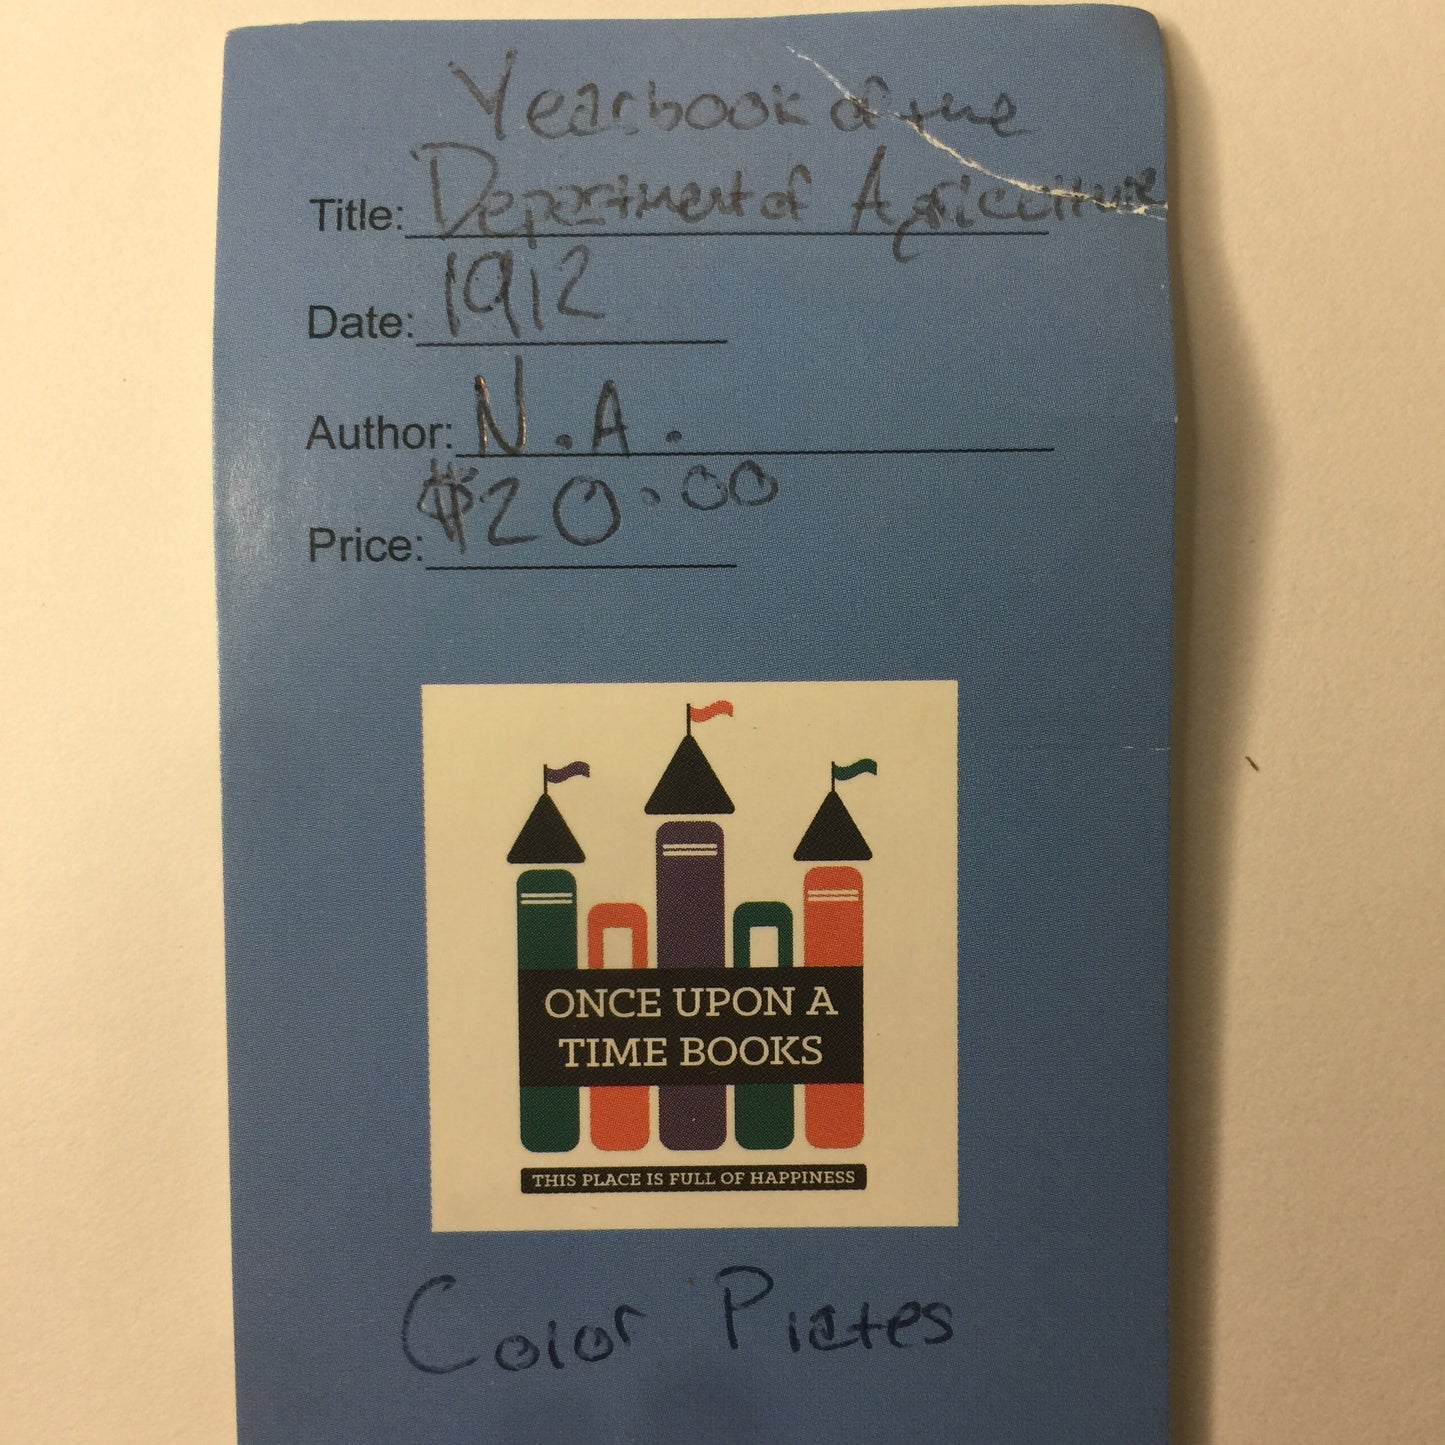 Yearbook of the
Title: Department of Agriculture
Date: 1912
Author: N.A.
Price: $20.00
ONCE UPON A
TIME BOOKS
THIS PLACE IS FULL OF HAPPINESS
Color Plates